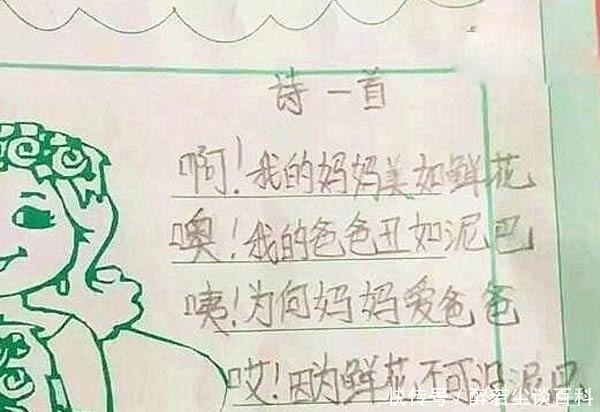 诗一首
啊!我的妈妈美如鲜花
噢!我的爸爸丑如泥巴
咦!为何妈妈爱爸爸
哎!因为鲜花不可没泥巴
快传号/醉若尘谈百科